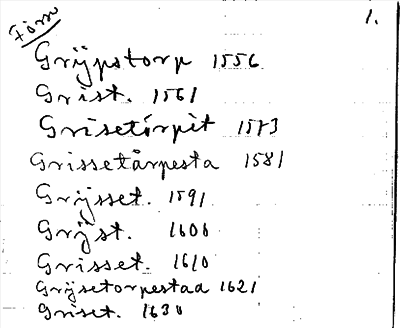 Förr
1.
Grijpstorp 1556
Grist. 1561
Grisetörpit 1573
Grissetårpesta 1581
Grijsset. 1591
Grijst. 1600
Grisset. 1610
Grijsetorpestaa 1621
Griset. 1630